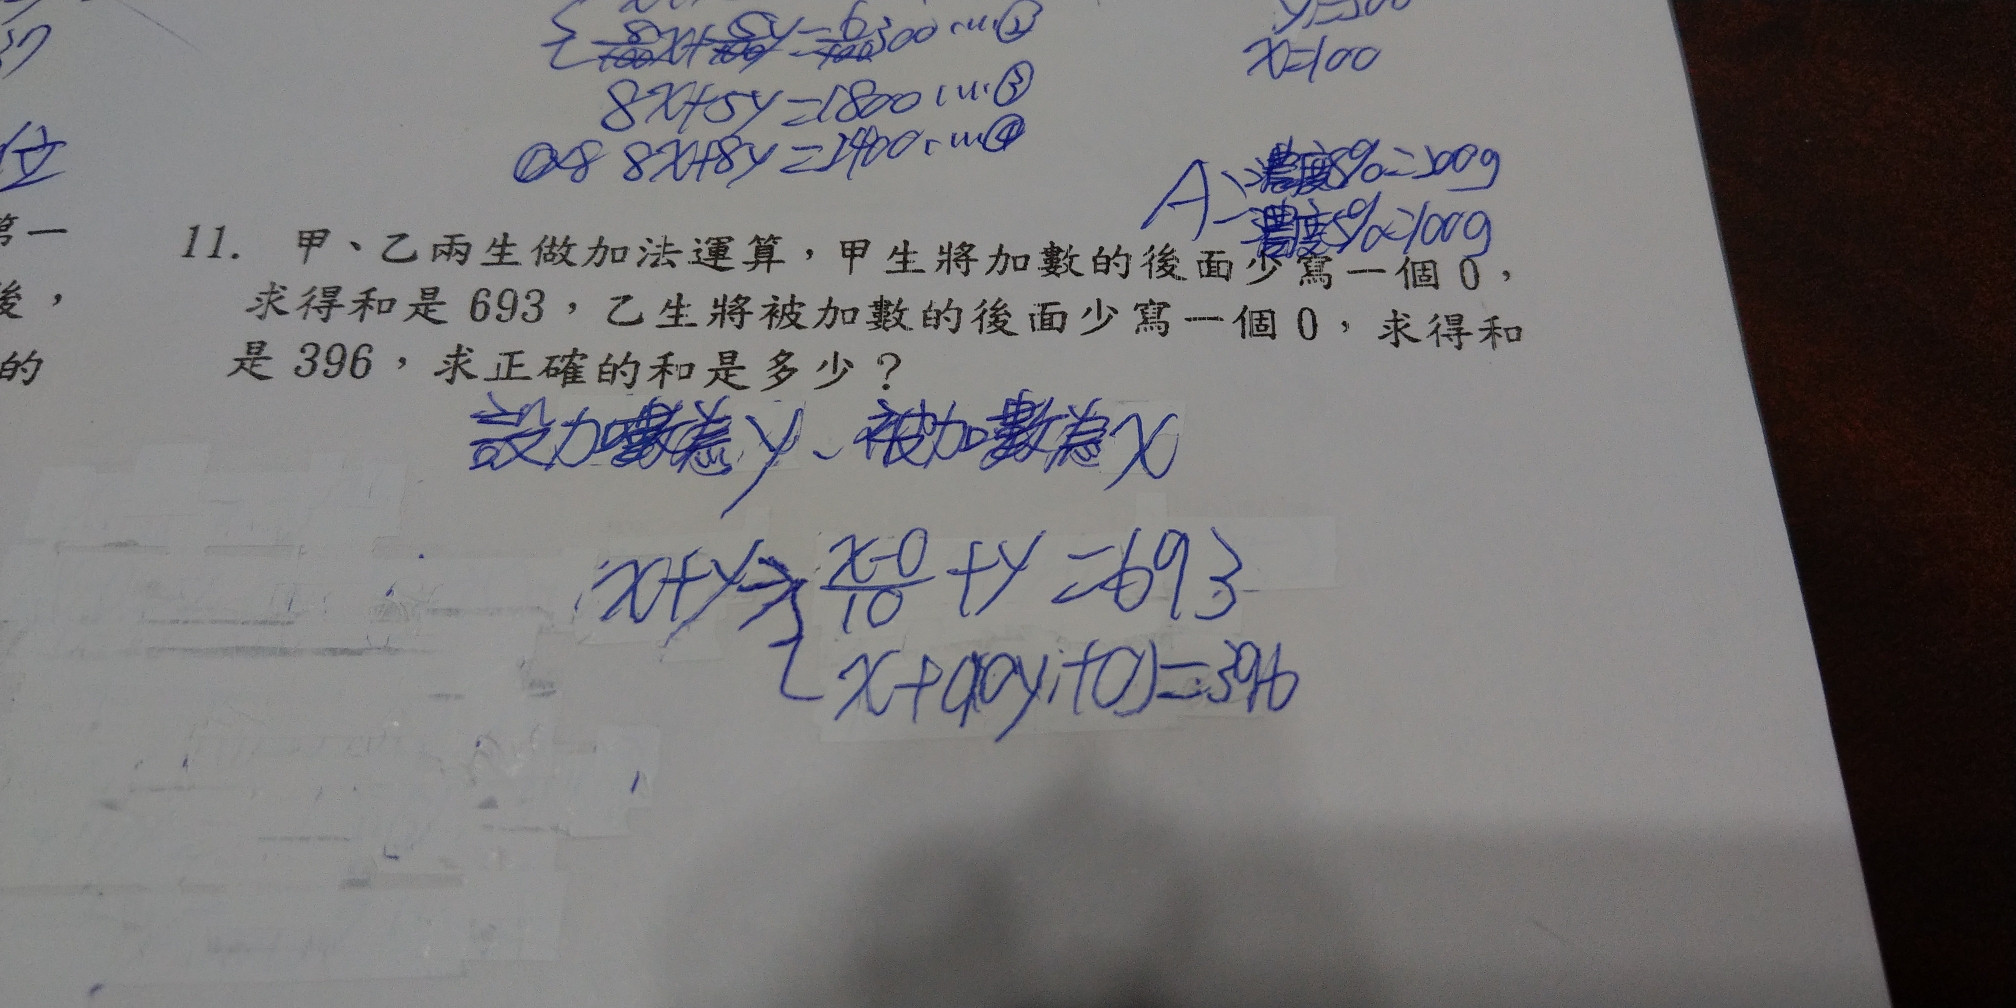 y=200
x=100
8/100x+5/100y=6/100300……②
8x+5y=1800……③
①×8 8x+8y=2400……④
A、濃度8%=200g
濃度5%=100g
位
第一
後，
的
11. 甲、乙兩生做加法運算，甲生將加數的後面少寫一個0，
求得和是693，乙生將被加數的後面少寫一個0，求得和
是396，求正確的和是多少？
設加數為y、被加數為x
x+y⇒{x-0/10+y=693
x+(10y+0)=396